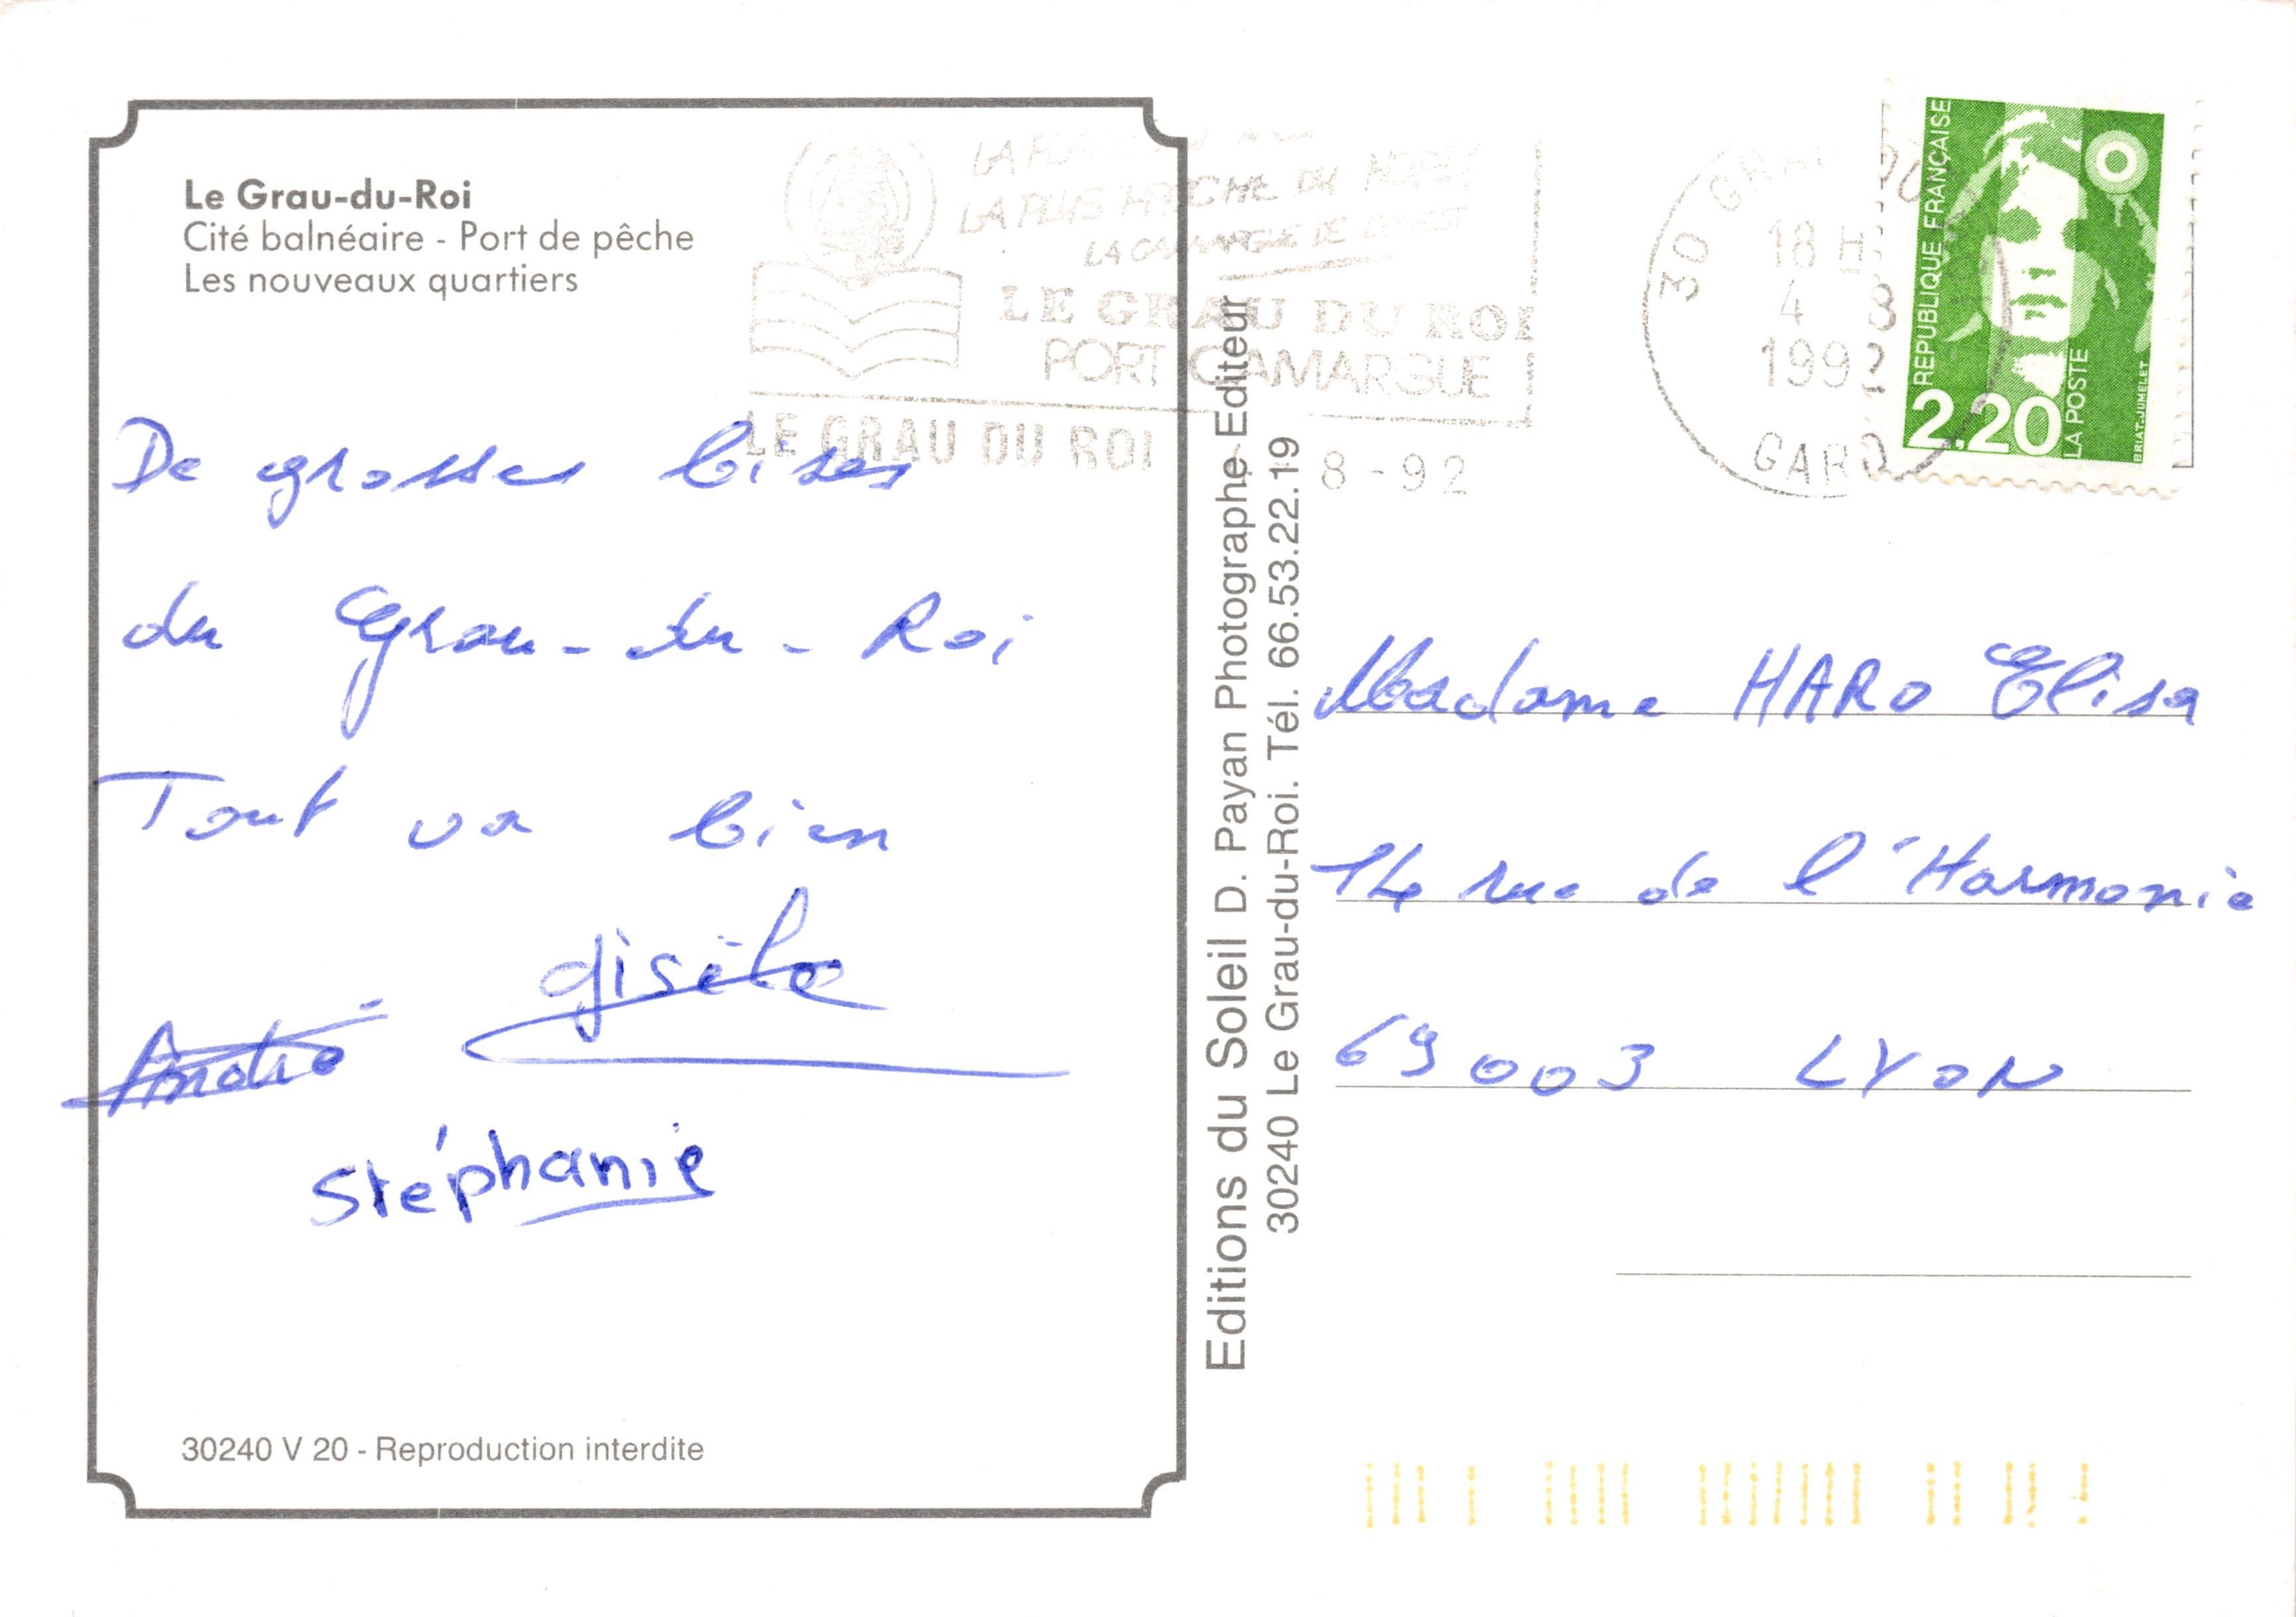 Le Grau-du-Roi
Cité balnéaire - Port de pêche
Les nouveaux quartiers
De grosses bises
du Grau-du-Roi
Tout va bien
gisèle
André
Stéphanie
30240 V 20 - Reproduction interdite
Editions du Soleil D. Payan Photographe-Editeur
30240 Le Grau-du-Roi. Tél. 66.53.22.19
LA
LA PLUS PROCHE DU NORD
LA CAMARGUE DE
LE GRAU DU ROI
PORT CAMARGUE
LE GRAU DU ROI
8-92
30 GRAU DU
18H
4 8
1992
GARD
REPUBLIQUE FRANÇAISE
2.20
LA POSTE
BRIAT-JUMELET
Madame HARO Elisa
14 rue de l'Harmonie
69003 LYON